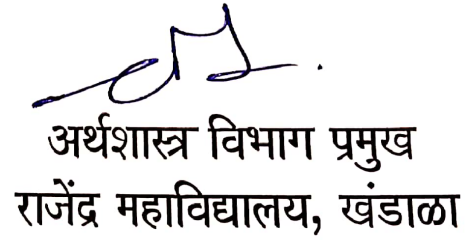 अर्थशास्त्र विभाग प्रमुख
राजेंद्र महाविद्यालय, खंडाळा